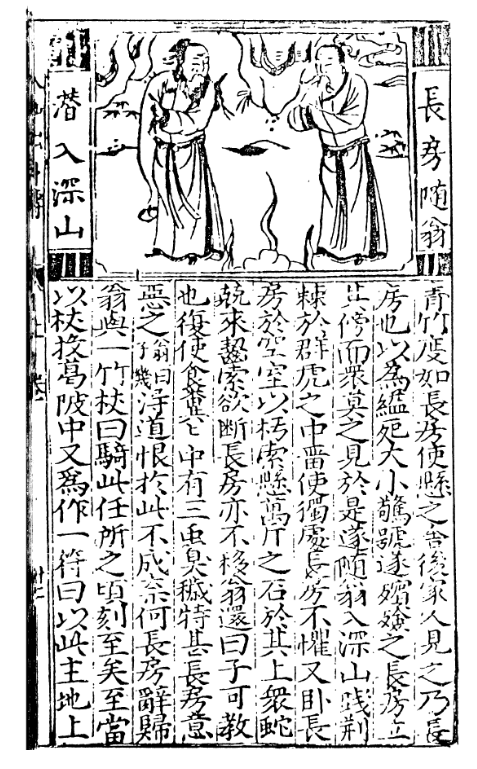 長房随翁
潜入深山
青竹度如長房使懸之舎後家人見之乃長
房也以為縊死大小驚號遂殯殮之長房立
其傍而衆莫之見於是遂随翁入深山践荆
棘於群虎之中畱使獨處長房不懼又卧長
房於空室以朽索懸萬斤之石於其上衆蛇
競來齧索欲断長房亦不移翁還曰子可教
也復使食糞〻中有三虫臭穢特甚長房意
惡之翁曰子幾淂道恨扵此不成柰何長房辭歸
翁與一竹杖曰騎此任所之頃刻至矣至當
以杖投葛陂中又為作一符曰以此主地上